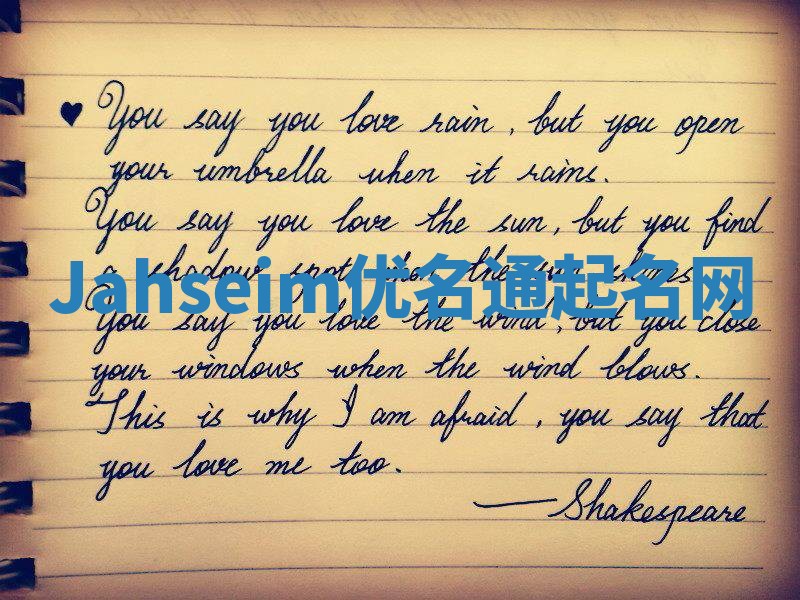 ♥ You say you love rain, but you open
your umbrella when it rains.
You say you love the sun, but you find
a shadow spot when the sun shines
Jahseim优名通起名网
You say you love the wind, but you close
your windows when the wind blows.
This is why I am afraid, you say that
you love me too.
— Shakespeare